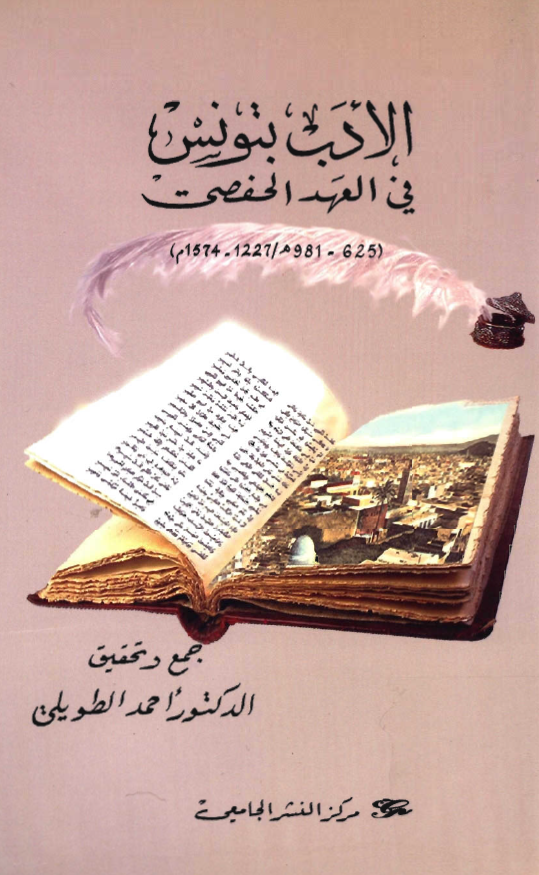 الأدب بتونس
في العهد الحفصي
(625 - 981هـ/1227 - 1574م)
جمع وتحقيق
الدكتور أحمد الطويلي
مركز النشر الجامعي